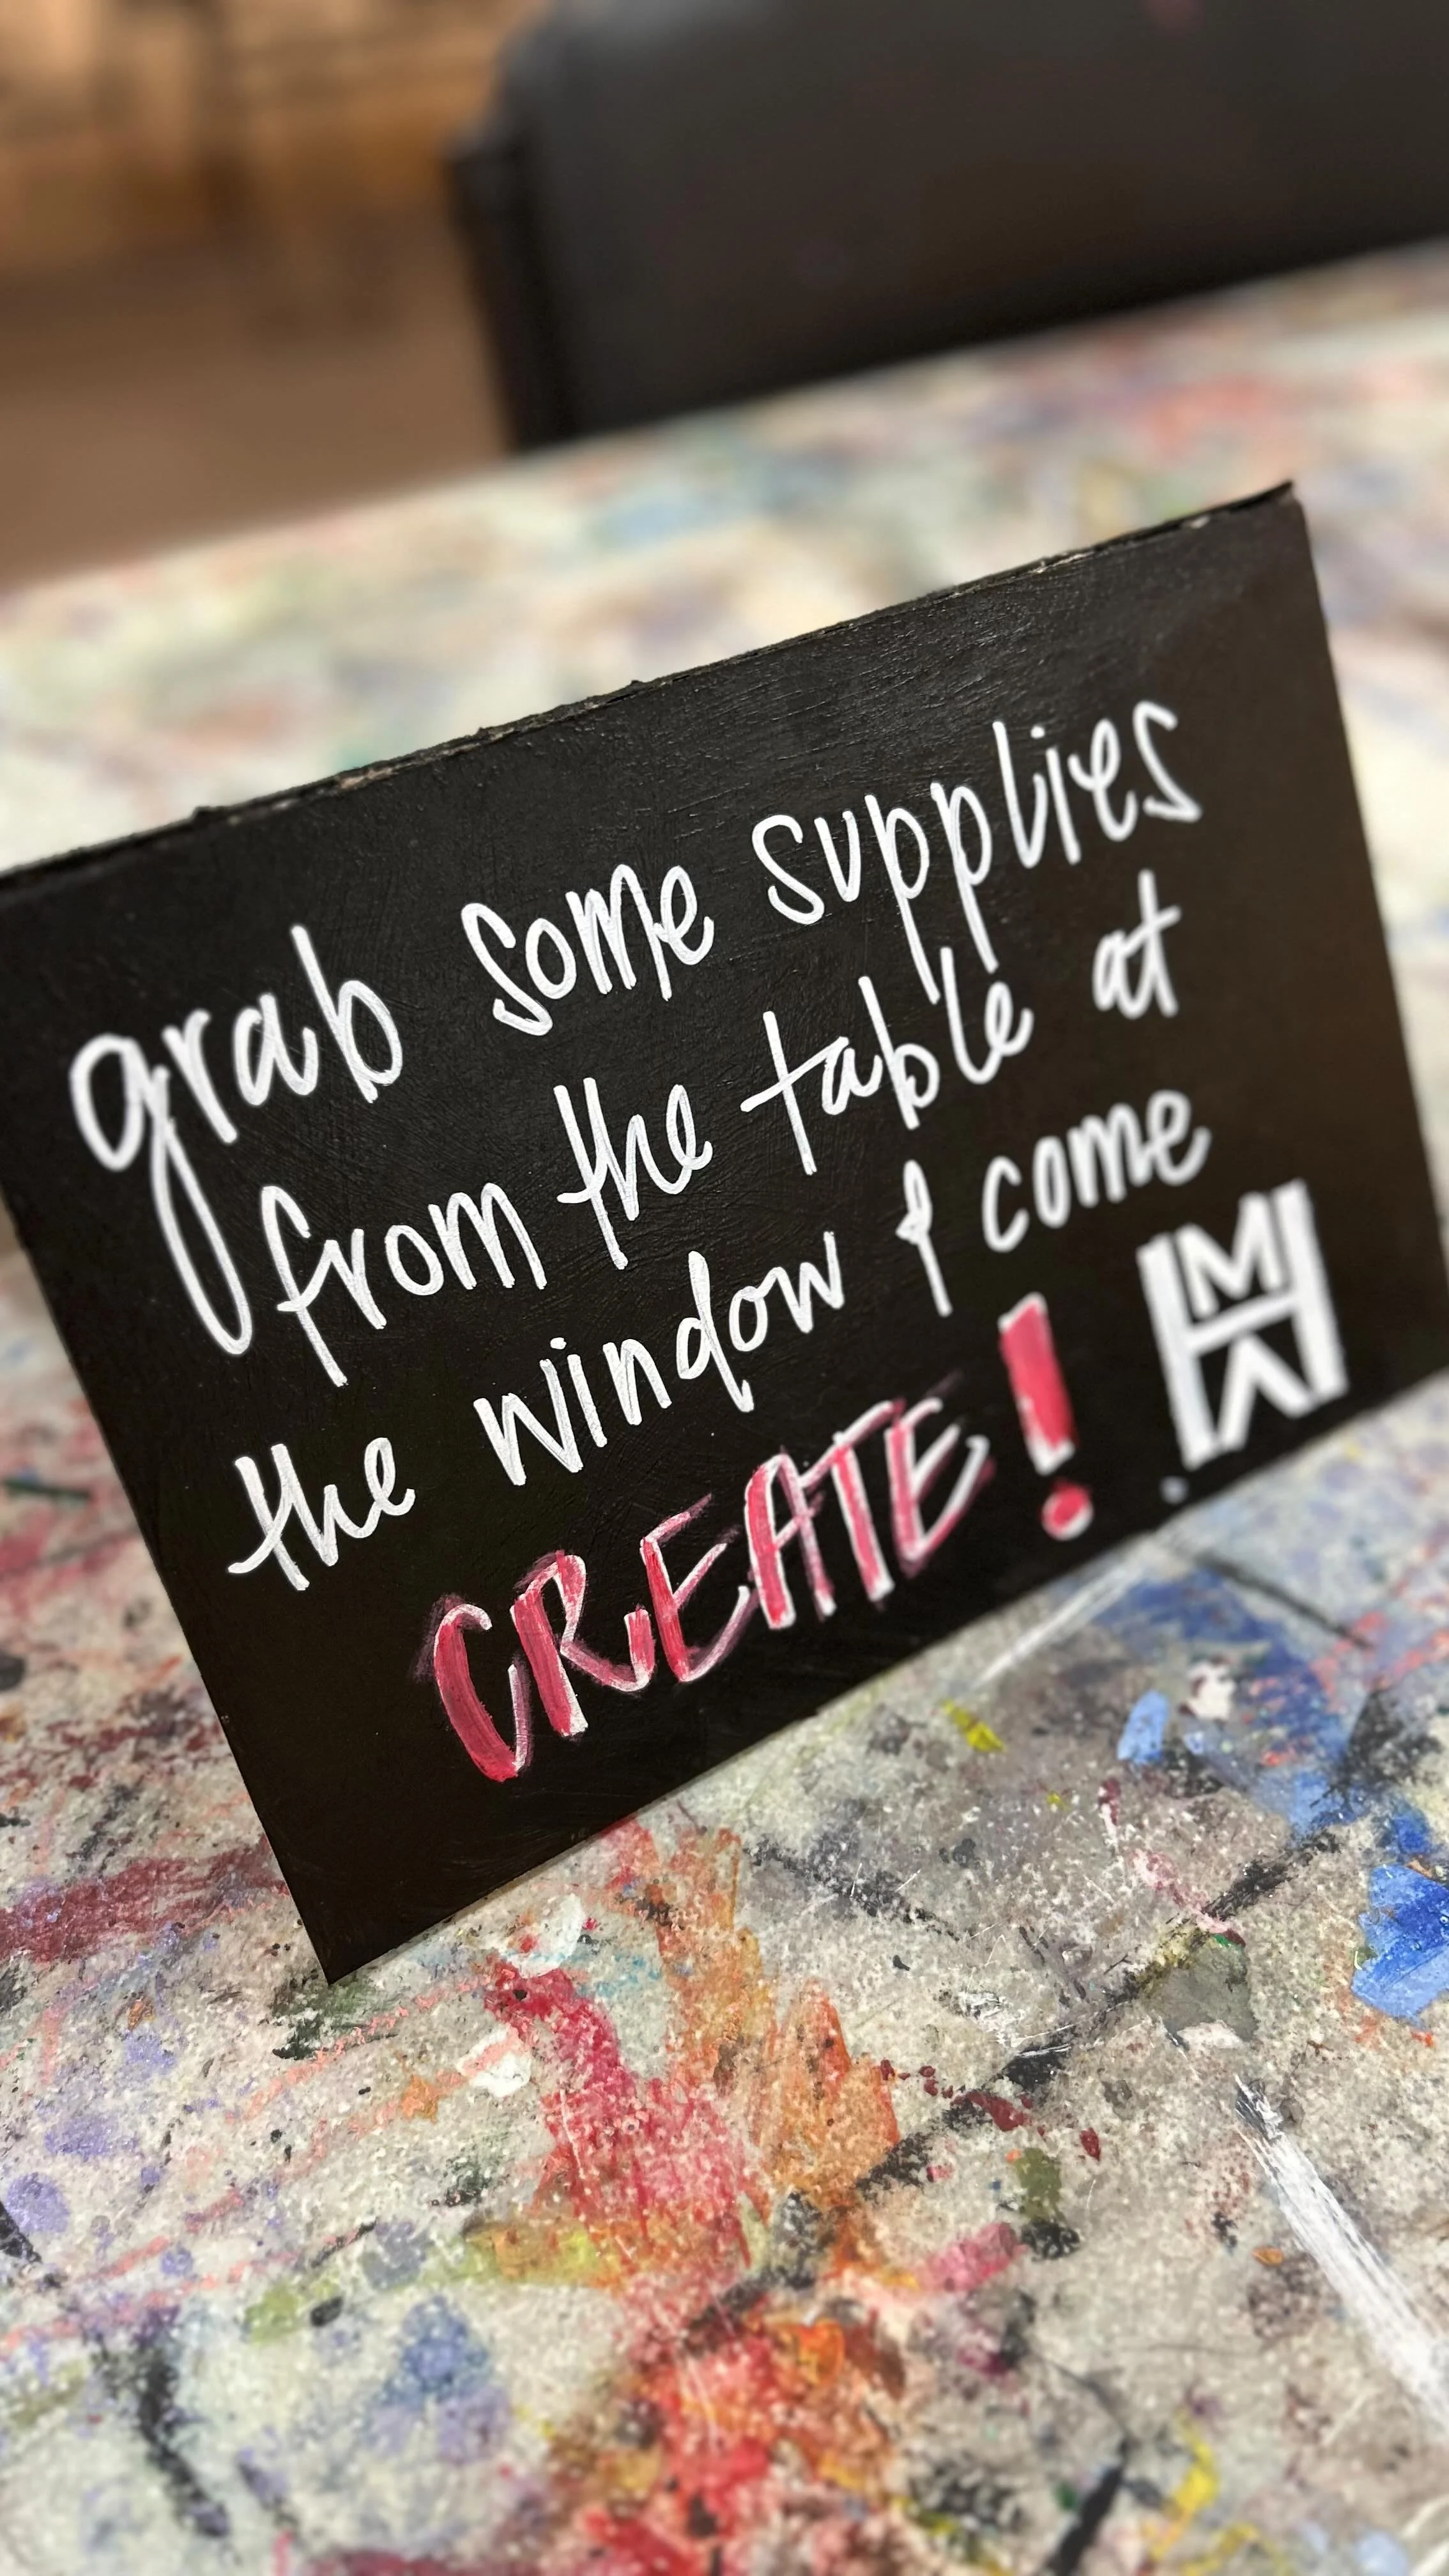 grab some supplies
from the table at
the window & come
CREATE!